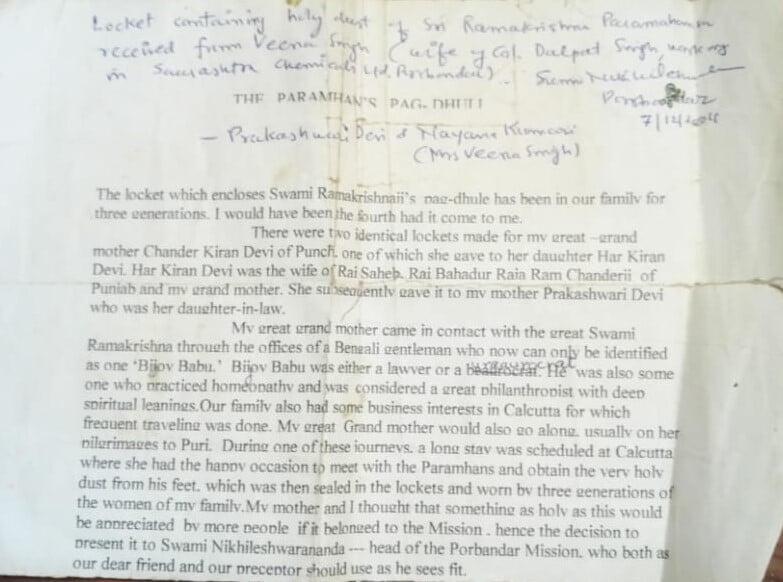 Locket containing holy dust of Sri Ramakrishna Paramahansa
received from Veena Singh (wife of Col. Dalpat Singh, working
in Saurashtra Chemicals Ltd. Porbandar).
Porbandar
THE PARAMHAN'S PAG-DHULI
7/12/
– Prakashwari Devi & Nayana Kumari
(Mrs Veena Singh)
The locket which encloses Swami Ramakrishnaji's pag-dhule has been in our family for
three generations. I would have been the fourth had it come to me.
There were two identical lockets made for my great –grand
mother Chander Kiran Devi of Punch, one of which she gave to her daughter Har Kiran
Devi. Har Kiran Devi was the wife of Rai Saheb. Rai Bahadur Raja Ram Chanderji of
Punjab and my grand mother. She subsequently gave it to my mother Prakashwari Devi
who was her daughter-in-law.
My great grand mother came in contact with the great Swami
Ramakrishna through the offices of a Bengali gentleman who now can only be identified
as one 'Bijoy Babu.' Bijoy Babu was either a lawyer or a He was also some
one who practiced homeopathy and was considered a great philanthropist with deep
spiritual leanings.Our family also had some business interests in Calcutta for which
frequent traveling was done. My great Grand mother would also go along, usually on her
pilgrimages to Puri. During one of these journeys, a long stay was scheduled at Calcutta
where she had the happy occasion to meet with the Paramhans and obtain the very holy
dust from his feet, which was then sealed in the lockets and worn by three generations of
the women of my family.My mother and I thought that something as holy as this would
be appreciated by more people if it belonged to the Mission , hence the decision to
present it to Swami Nikhileshwarananda --- head of the Porbandar Mission, who both as
our dear friend and our preceptor should use as he sees fit.